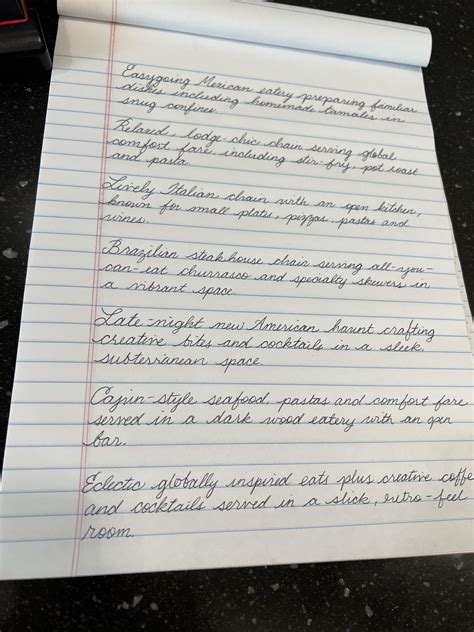 Easygoing Mexican eatery preparing familiar
dishes including homemade tamales in
snug confines.
Relaxed, lodge-chic chain serving global
comfort fare, including stir-fry, pot roast
and pasta.
Lively Italian chain with an open kitchen,
known for small plates, pizzas, pastas and
wines.
Brazilian steakhouse chain serving all-you-
can-eat churrasco and specialty skewers in
a vibrant space.
Late-night new American haunt crafting
creative bites and cocktails in a sleek,
subterranean space.
Cajun-style seafood, pastas and comfort fare
served in a dark wood eatery with an open
bar.
Eclectic globally inspired eats plus creative coffe
and cocktails served in a slick, retro-feel
room.